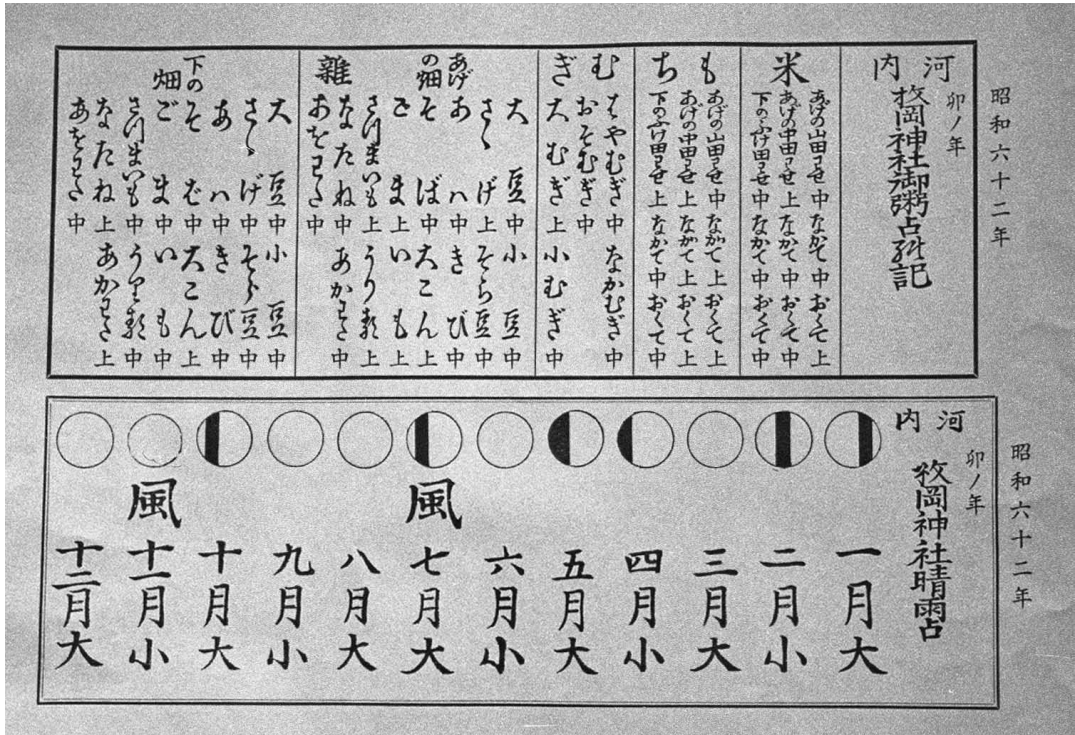 昭和六十二年
卯ノ年
河内
枚岡神社御粥占卦記
米
あげの山田わせ 中 なかて 中 おくて 上
あげの中田わせ 上 なかて 中 おくて 中
下のふけ田わせ 中 なかて 中 おくて 中
もち
あげの山田わせ 中 なかて 上 おくて 上
あげの中田わせ 上 なかて 上 おくて 上
下のふけ田わせ 中 なかて 中 おくて 中
むぎ
はやむぎ 中 なかむぎ 中
おそむぎ 中
大むぎ 上 小むぎ 中
あげの畑
雜
大豆 中 小豆 中
さゝげ 上 そら豆 中
あハ 中 きび 中
そば 中 大こん 上
ごま 上 いも 上
さつまいも 上 うり類 上
なたね 中 あかわた 中
あをわた 中
下の畑
大豆 中 小豆 中
さゝげ 中 そら豆 中
あハ 中 きび 中
そば 中 大こん 上
ごま 中 いも 中
さつまいも 中 うり類 中
なたね 上 あかわた 上
あをわた 中
昭和六十二年
卯ノ年
河内
枚岡神社晴雨占
一月大
二月小
三月大
四月小
五月大
六月小
風 七月大
八月大
九月小
十月大
風 十一月小
十二月大